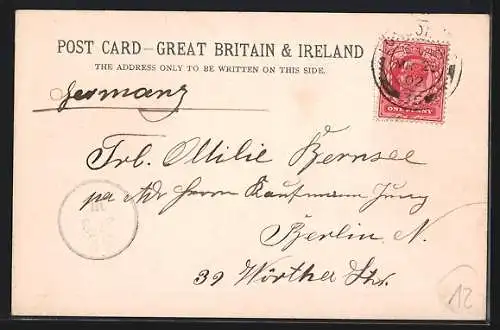 POST CARD—GREAT BRITAIN & IRELAND
THE ADDRESS ONLY TO BE WRITTEN ON THIS SIDE.
Germany
ONE PENNY
Frl. Ottilie Bernsee
pa Adr Herrn Kaufmann Jung
Berlin N.
39 Wörther Str.
12